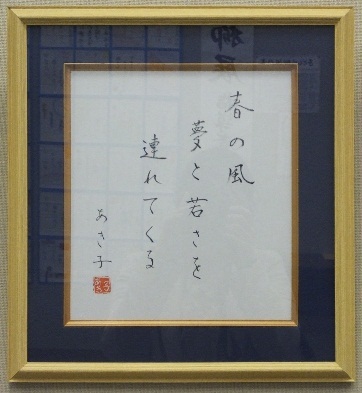 春の風
夢と若さを
連れてくる
あき子